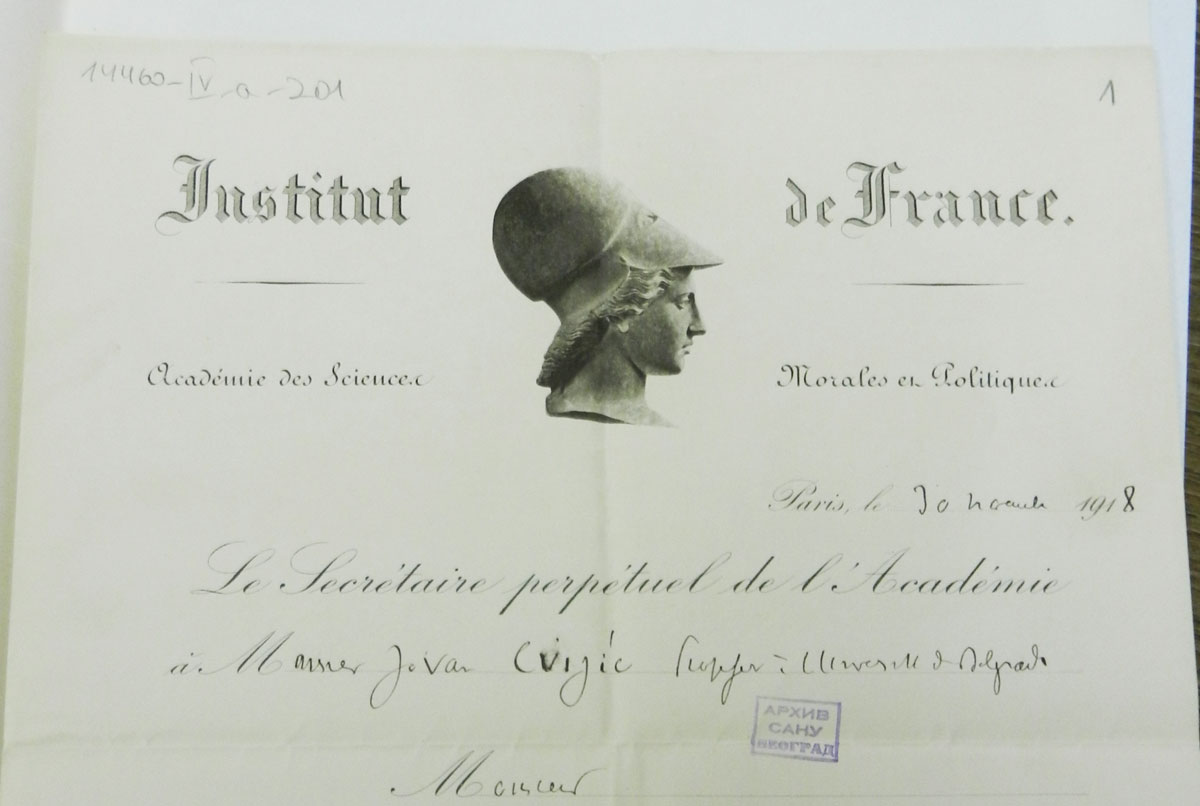 14460-IV-a-201
1
Institut de France.
Académie des Sciences Morales et Politiques
Paris, le 30 novembre 1918
Le Secrétaire perpétuel de l'Académie
à Monsieur Jovan Cvijić Professeur à l'Université de Belgrade
АРХИВ
САНУ
БЕОГРАД
Monsieur